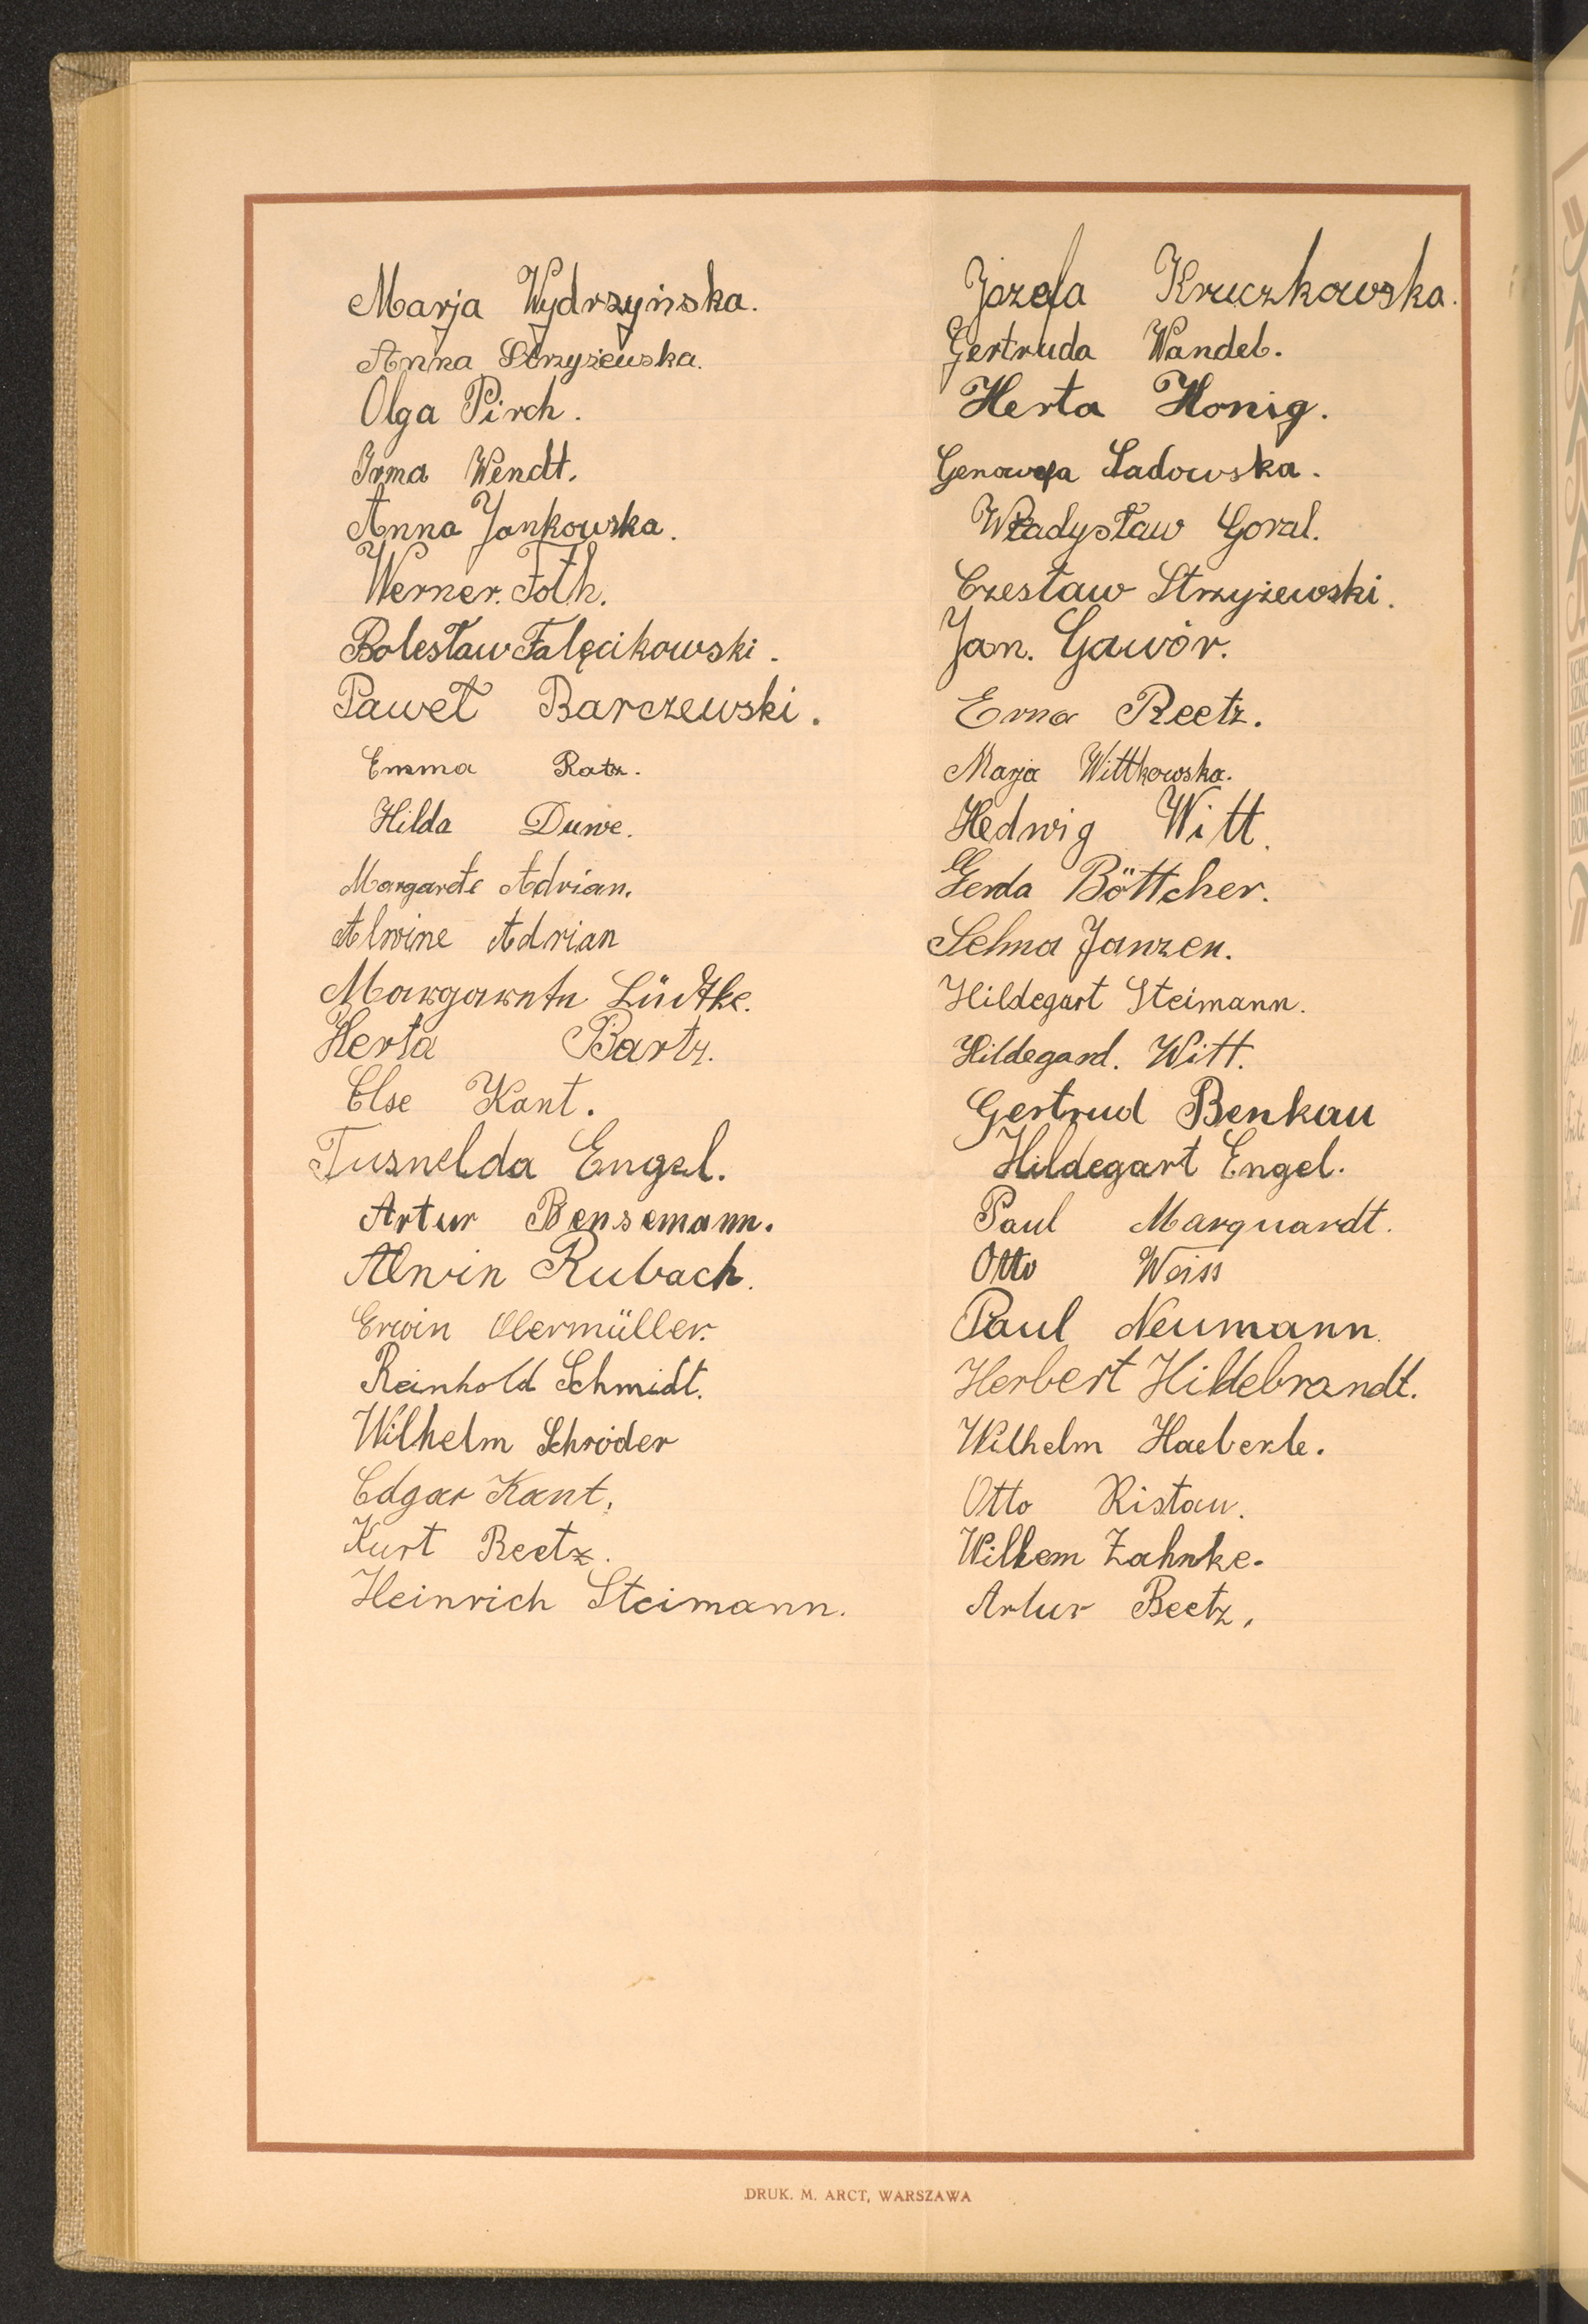 Marja Wydrzyńska.
Anna Strzyżewska.
Olga Pirch.
Irma Wendt.
Anna Jankowska.
Werner. Foth.
Bolesław Falęcikowski.
Paweł Barczewski.
Emma Ratz.
Hilda Duwe.
Margarete Adrian.
Alwine Adrian
Margarete Lüdtke.
Herta Bartz.
Else Kant.
Tusnelda Engel.
Artur Bensemann.
Alwin Rubach.
Erwin Obermüller.
Reinhold Schmidt.
Wilhelm Schröder
Edgar Kant.
Kurt Reetz.
Heinrich Steimann.
Józefa Kruczkowska.
Gertruda Wandel.
Herta Honig.
Genowefa Sadowska.
Władysław Goral.
Czesław Strzyżewski.
Jan. Gawór.
Erna Reetz.
Marja Wittkowska.
Hedwig Witt.
Gerda Böttcher.
Selma Janzen.
Hildegart Steimann.
Hildegard. Witt.
Gertrud Benkau
Hildegart Engel.
Paul Marquardt.
Otto Weiss
Paul Neumann.
Herbert Hildebrandt.
Wilhelm Haeberle.
Otto Ristau.
Wilhem Zahnke.
Artur Reetz.
DRUK. M. ARCT, WARSZAWA